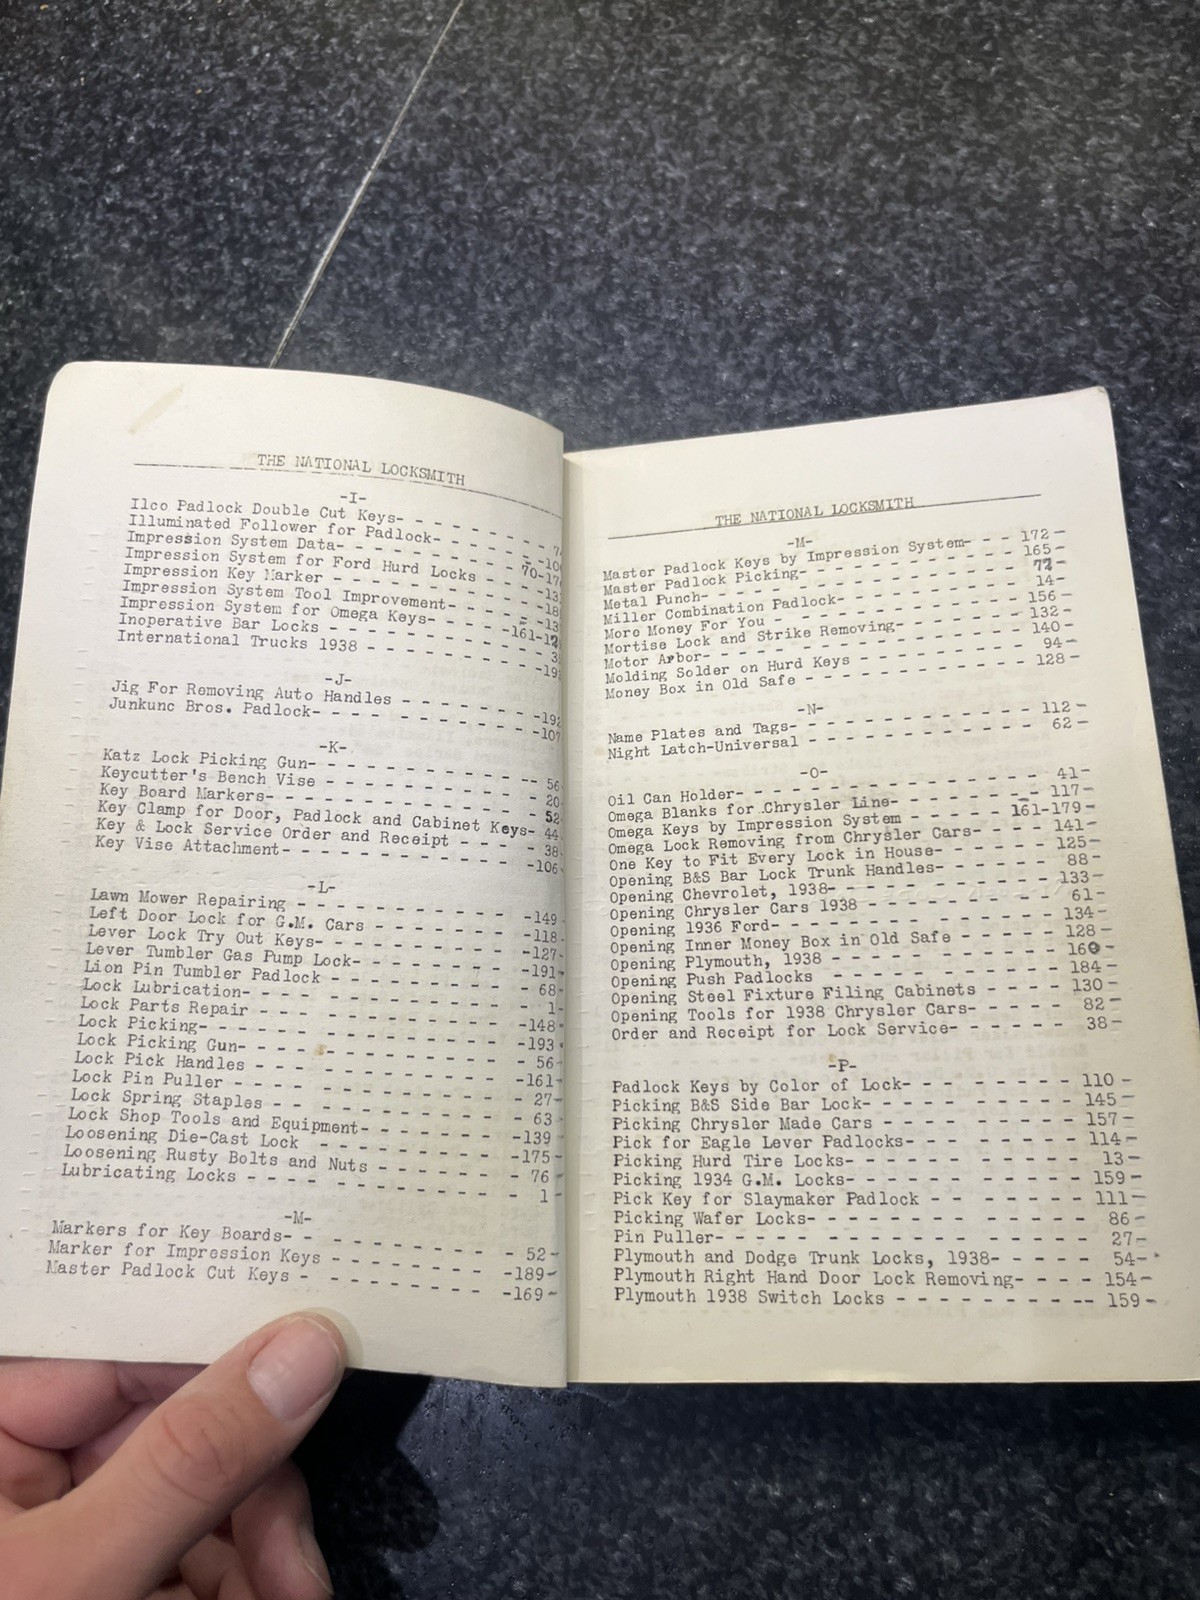 THE NATIONAL LOCKSMITH
-I-
Ilco Padlock Double Cut Keys- - - - - - - -
Illuminated Follower for Padlock- - - - - -
Impression System Data- - - - - - - - - - -
Impression System for Ford Hurd Locks - - -
Impression Key Marker - - - - - - - - - - -
Impression System Tool Improvement- - - - -
Impression System for Omega Keys- - - - - -
Inoperative Bar Locks - - - - - - - - - - -
International Trucks 1938 - - - - - - - - -
-J-
Jig For Removing Auto Handles - - - - - - -192
Junkunc Bros. Padlock- - - - - - - - - - -107
-K-
Katz Lock Picking Gun- - - - - - - - - - -- 56
Keycutter's Bench Vise - - - - - - - - - - 20
Key Board Markers- - - - - - - - - - - - - 52
Key Clamp for Door, Padlock and Cabinet Keys- 44
Key & Lock Service Order and Receipt - - - - 38
Key Vise Attachment- - - - - - - - - - - -106
-L-
Lawn Mower Repairing - - - - - - - - - - -149
Left Door Lock for G.M. Cars - - - - - - -118
Lever Lock Try Out Keys- - - - - - - - - -127
Lever Tumbler Gas Pump Lock- - - - - - - -191
Lion Pin Tumbler Padlock - - - - - - - - - 68
Lock Lubrication- - - - - - - - - - - - - 1
Lock Parts Repair - - - - - - - - - - - -148
Lock Picking- - - - - - - - - - - - - - -193
Lock Picking Gun- - - - - - - - - - - - - 56
Lock Pick Handles - - - - - - - - - - - -161
Lock Pin Puller - - - - - - - - - - - - - 27
Lock Spring Staples - - - - - - - - - - - 63
Lock Shop Tools and Equipment- - - - - - -139
Loosening Die-Cast Lock - - - - - - - - -175
Loosening Rusty Bolts and Nuts - - - - - - 76
Lubricating Locks - - - - - - - - - - - - 1
-M-
Markers for Key Boards- - - - - - - - - - 52
Marker for Impression Keys - - - - - - - -189
Master Padlock Cut Keys - - - - - - - - -169
THE NATIONAL LOCKSMITH
-M-
Master Padlock Keys by Impression System- - - 172
Master Padlock Picking- - - - - - - - - - - 165
Metal Punch- - - - - - - - - - - - - - - - 77
Miller Combination Padlock- - - - - - - - - 14
More Money For You - - - - - - - - - - - - 156
Mortise Lock and Strike Removing- - - - - - 132
Motor Arbor- - - - - - - - - - - - - - - - 140
Molding Solder on Hurd Keys - - - - - - - - 94
Money Box in Old Safe - - - - - - - - - - - 128
-N-
Name Plates and Tags- - - - - - - - - - - - 112
Night Latch-Universal - - - - - - - - - - - 62
-O-
Oil Can Holder- - - - - - - - - - - - - - - 41
Omega Blanks for Chrysler Line- - - - - - - 117
Omega Keys by Impression System - - - - - 161-179
Omega Lock Removing from Chrysler Cars- - - - 141
One Key to Fit Every Lock in House- - - - - - 125
Opening B&S Bar Lock Trunk Handles- - - - - - 88
Opening Chevrolet, 1938- - - - - - - - - - - 133
Opening Chrysler Cars 1938 - - - - - - - - - 61
Opening 1936 Ford- - - - - - - - - - - - - - 134
Opening Inner Money Box in Old Safe - - - - - 128
Opening Plymouth, 1938 - - - - - - - - - - - 160
Opening Push Padlocks - - - - - - - - - - - 184
Opening Steel Fixture Filing Cabinets - - - - 130
Opening Tools for 1938 Chrysler Cars- - - - - 82
Order and Receipt for Lock Service- - - - - - 38
-P-
Padlock Keys by Color of Lock- - - - - - - - 110
Picking B&S Side Bar Lock- - - - - - - - - - 145
Picking Chrysler Made Cars - - - - - - - - - 157
Pick for Eagle Lever Padlocks- - - - - - - - 114
Picking Hurd Tire Locks- - - - - - - - - - - 13
Picking 1934 G.M. Locks- - - - - - - - - - - 159
Pick Key for Slaymaker Padlock - - - - - - - 111
Picking Wafer Locks- - - - - - - - - - - - - 86
Pin Puller- - - - - - - - - - - - - - - - - 27
Plymouth and Dodge Trunk Locks, 1938- - - - - 54
Plymouth Right Hand Door Lock Removing- - - - 154
Plymouth 1938 Switch Locks - - - - - - - - -- 159